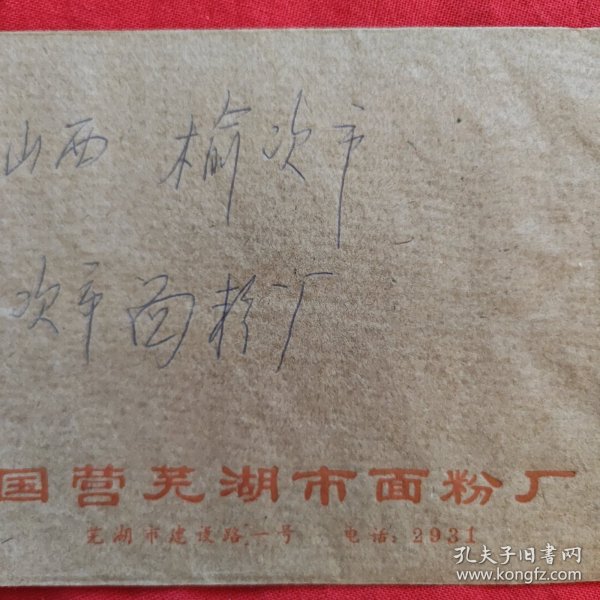 山西 榆次市
次市面粉厂
国营芜湖市面粉厂
芜湖市建设路一号 电话：2931
孔夫子旧书网
www.kongfz.com